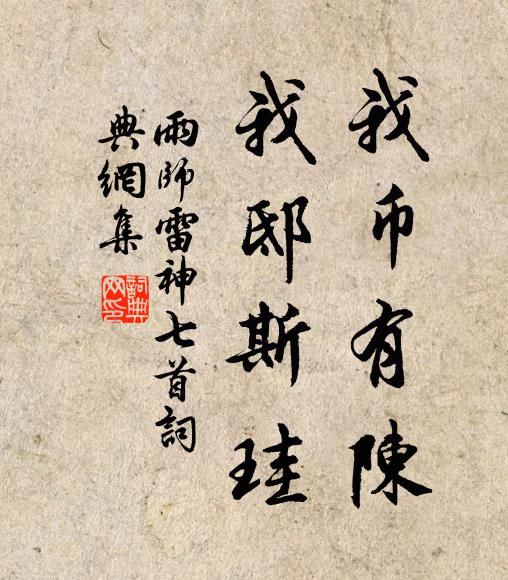 我币有陳
我邸斯珪
雨師雷神七首詞
典網集
詞典
网印